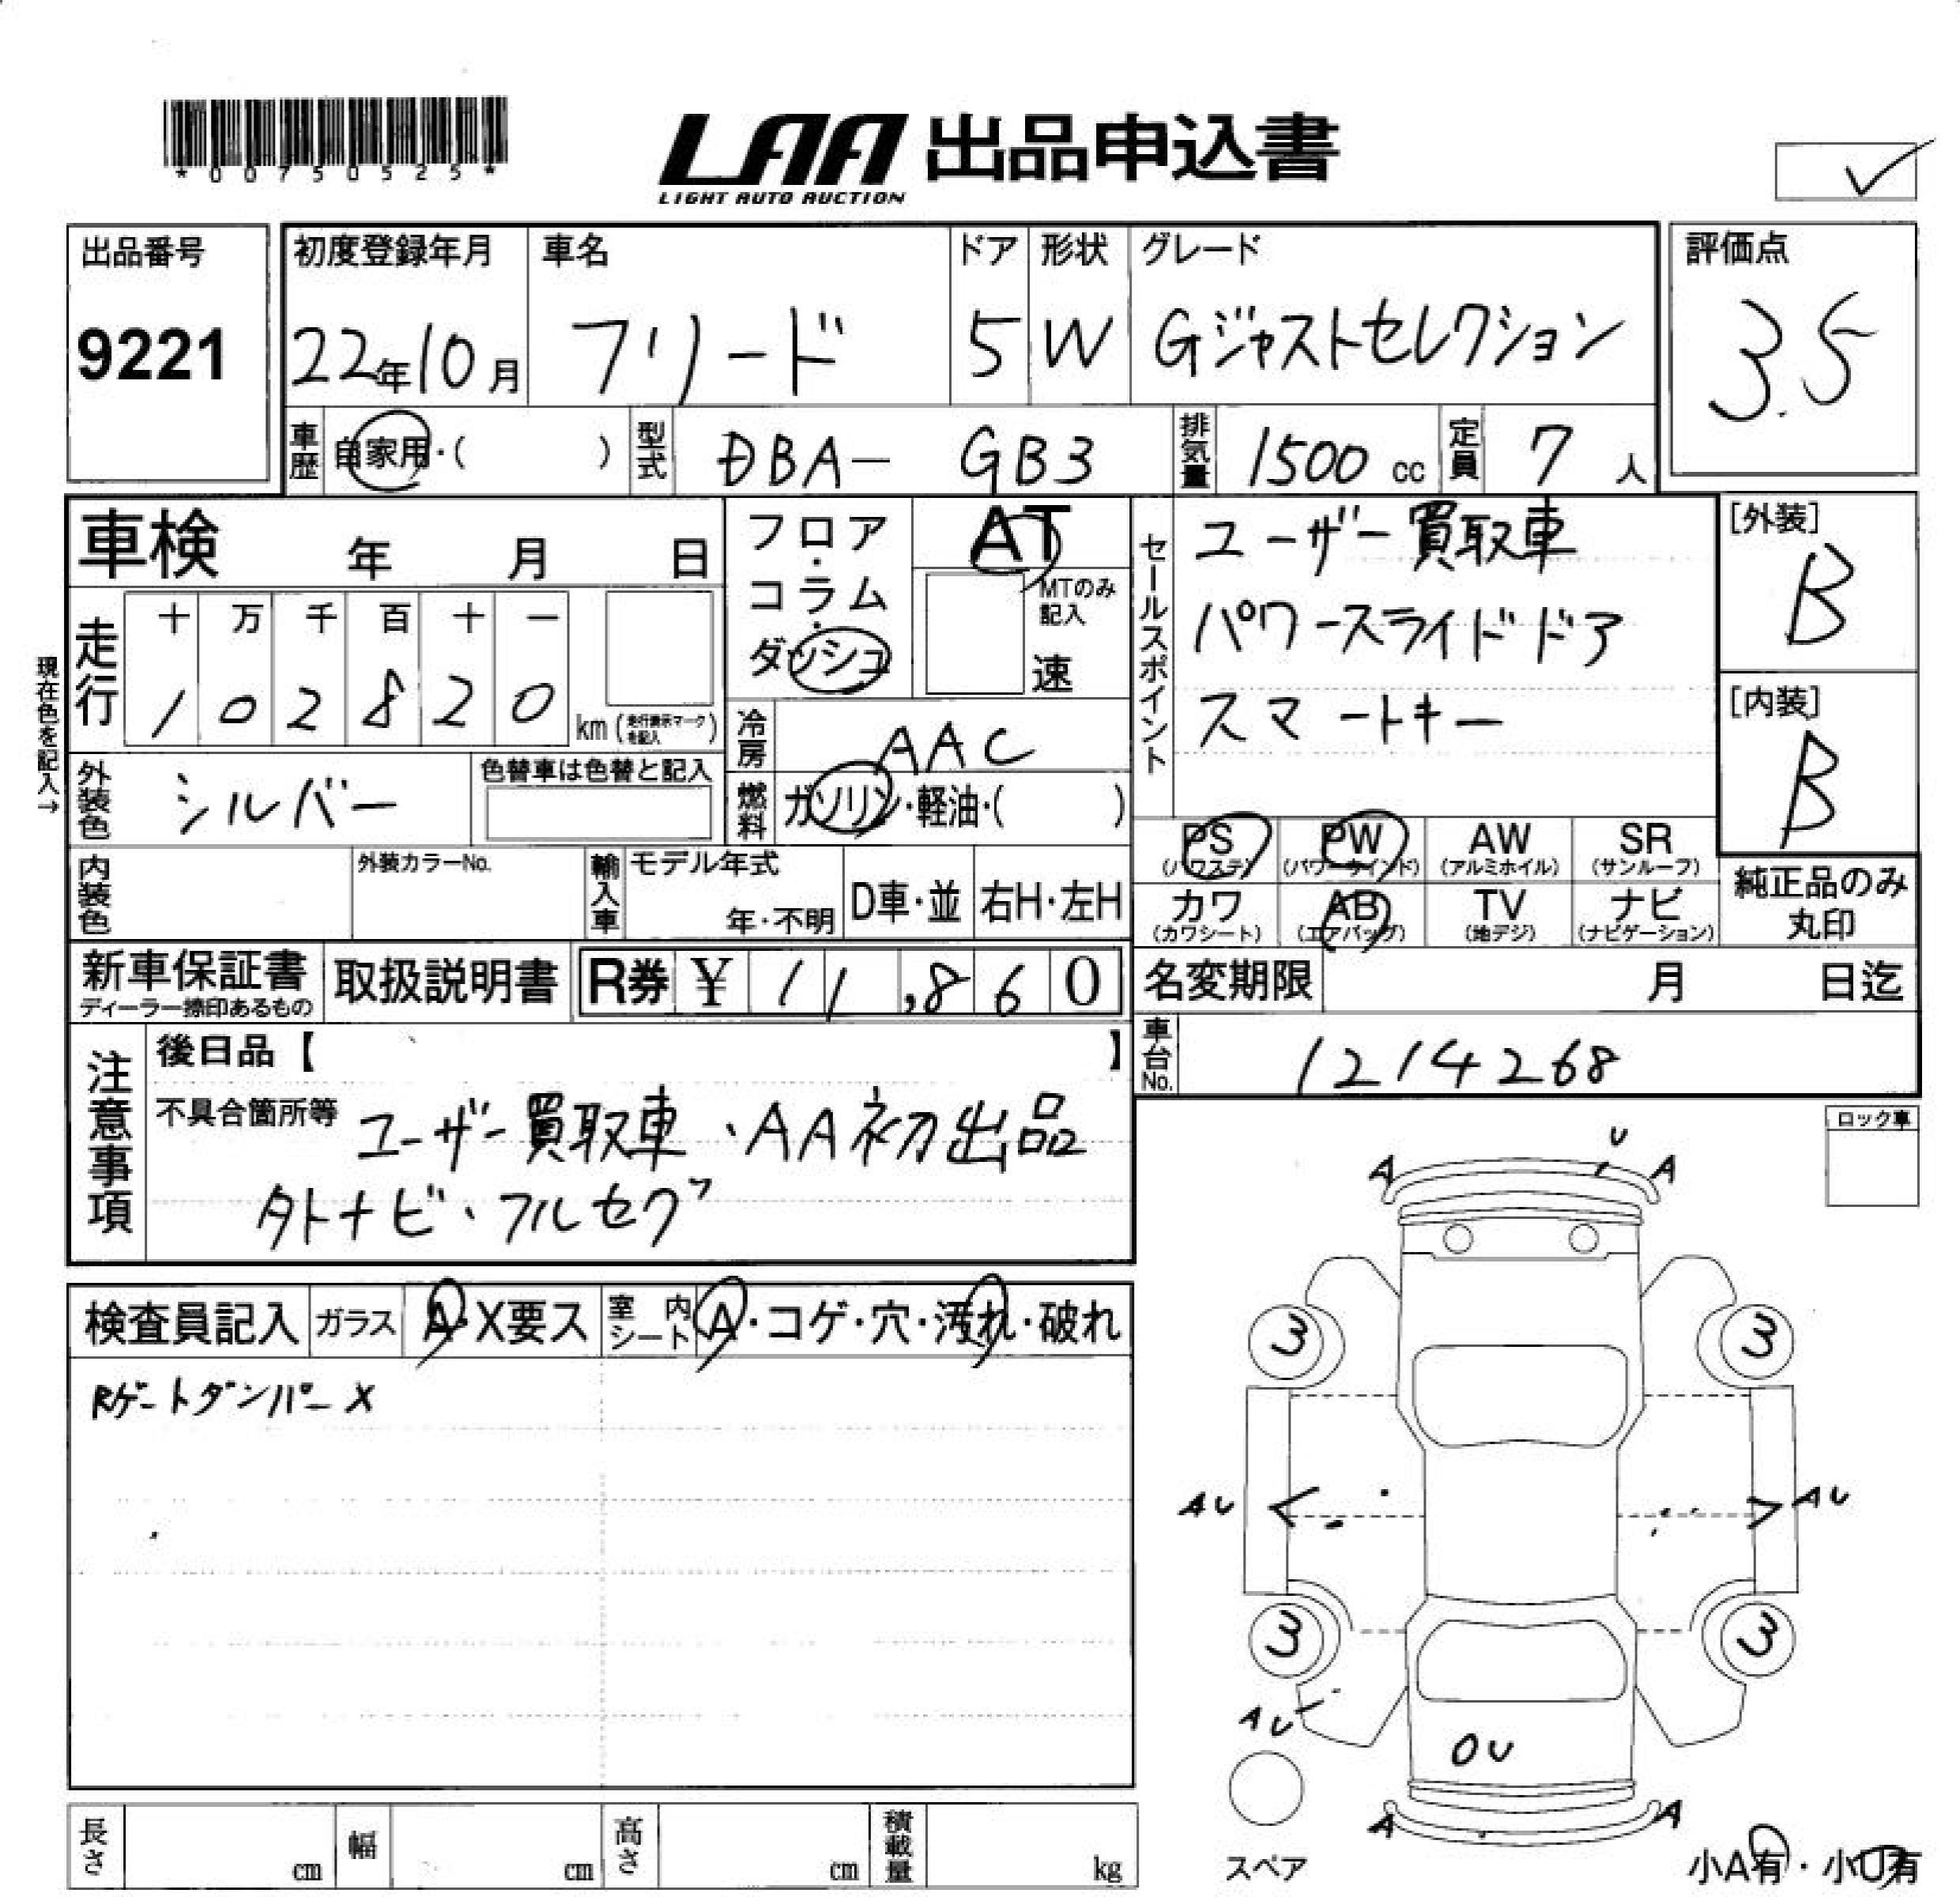 *00750525*
LAA 出品申込書
LIGHT AUTO AUCTION
出品番号
9221
初度登録年月
22年10月
車名
フリード
ドア
5
形状
W
グレード
Gジャストセレクション
評価点
3.5
車歴
自家用・( )
型式
DBA- GB3
排気量
1500 cc
定員
7 人
車検 年 月 日
フロア・コラム・ダッシュ
AT
MTのみ記入
速
セールスポイント
ユーザー買取車
パワースライドドア
スマートキー
[外装]
B
[内装]
B
現在色を記入→
走行
十 万 千 百 十 一
1 0 2 8 2 0
km (走行表示マークを記入)
冷房
AAC
外装色
シルバー
色替車は色替と記入
燃料
ガソリン・軽油・( )
PS (パワステ)
PW (パワーウインド)
AW (アルミホイル)
SR (サンルーフ)
カワ (カワシート)
AB (エアバッグ)
TV (地デジ)
ナビ (ナビゲーション)
純正品のみ
丸印
内装色
外装カラーNo.
輸入車
モデル年式
年・不明
D車・並
右H・左H
新車保証書
ディーラー捺印あるもの
取扱説明書
R券 ¥ 11,860
名変期限 月 日迄
車台No.
1214268
注意事項
後日品【 】
不具合箇所等 ユーザー買取車、AA初出品
外ナビ・フルセグ
ロック車
検査員記入
ガラス
A・X要ス
室内シート
A・コゲ・穴・汚れ・破れ
Rゲートダンパー X
A U A
3 3
AU AU
3 3
AU
OU
A A
スペア
小A有・小U有
長さ cm
幅 cm
高さ cm
積載量 kg